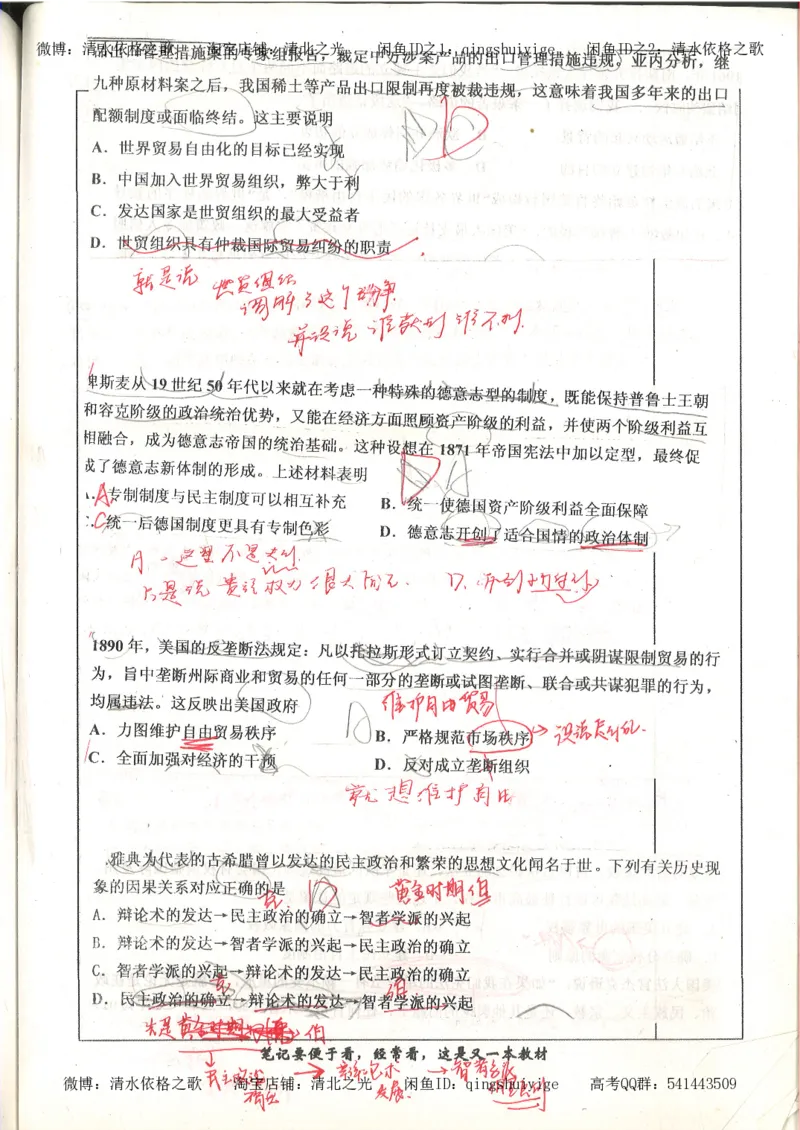 微博：清水依格之歌 淘宝店铺：清北之光 闲鱼ID之1：qingshuiyige 闲鱼ID之2：清水依格之歌
出口管理措施案的专家组报告，裁定中方涉案产品的出口管理措施违规。业内分析，继
九种原材料案之后，我国稀土等产品出口限制再度被裁违规，这意味着我国多年来的出口
配额制度或面临终结。这主要说明
A．世界贸易自由化的目标已经实现
B．中国加入世界贸易组织，弊大于利
C．发达国家是世贸组织的最大受益者
D．世贸组织具有仲裁国际贸易纠纷的职责
就是说 世贸组织
调解了这个纷争
并没说 谁有利 谁不利.
卑斯麦从 19 世纪 50 年代以来就在考虑一种特殊的德意志型的制度，既能保持普鲁士王朝
和容克阶级的政治统治优势，又能在经济方面照顾资产阶级的利益，并使两个阶级利益互
相融合，成为德意志帝国的统治基础。这种设想在 1871 年帝国宪法中加以定型，最终促
成了德意志新体制的形成。上述材料表明
A 专制制度与民主制度可以相互补充 B．统一使德国资产阶级利益全面保障
C 统一后德国制度更具有专制色彩 D．德意志开创了适合国情的政治体制
A 这里不是
1890 年，美国的反垄断法规定：凡以托拉斯形式订立契约、实行合并或阴谋限制贸易的行
为，旨中垄断州际商业和贸易的任何一部分的垄断或试图垄断、联合或共谋犯罪的行为，
均属违法。这反映出美国政府
维护自由贸易
A．力图维护自由贸易秩序 B．严格规范市场秩序
C．全面加强对经济的干预 D．反对成立垄断组织
就想维护自由
雅典为代表的古希腊曾以发达的民主政治和繁荣的思想文化闻名于世。下列有关历史现
象的因果关系对应正确的是
黄金时期 伯
A．辩论术的发达→民主政治的确立→智者学派的兴起
B．辩论术的发达→智者学派的兴起→民主政治的确立
C．智者学派的兴起→辩论术的发达→民主政治的确立
D．民主政治的确立→辩论术的发达→智者学派的兴起
笔记要便于看，经常看，这是又一本教材
民主政治确立 → 辩论术发展 → 智者学派
微博：清水依格之歌 淘宝店铺：清北之光 闲鱼ID：qingshuiyige 高考QQ群：541443509